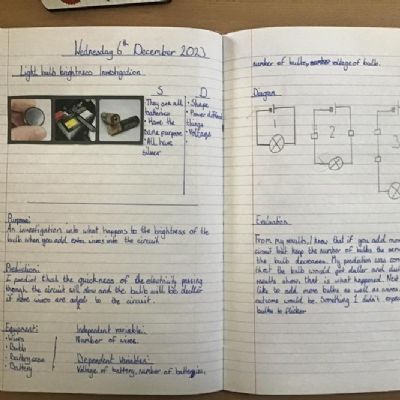 Wednesday 6th December 2023
Light bulb brightness Investigation
S D
• They are all batteries
• Have the same purpose
• All have silver
• Shape
• Power different things
• Voltage
Purpose:
An investigation into what happens to the brightness of the
bulb when you add extra wires into the circuit
Prediction:
I predict that the quickness of the electricity passing
though the circuit will slow and the bulb will be duller
if more wires are added to the circuit.
Equipment:
• Wires
• Bulb
• Battery
Independent variable:
Number of wires.
Dependent Variables:
Voltage of battery, number of batteries,
number of bulbs, voltage of bulb.
Diagram
2
3
Evaluation
From my results, I know that if you add more
circuit but keep the number of bulbs the same
the bulb decreases. My prediction was
that the bulb would get duller and
results show that is what happened. Next
like to add more bulbs as well as wires
outcome would be. Something I didn't
bulbs to flicker